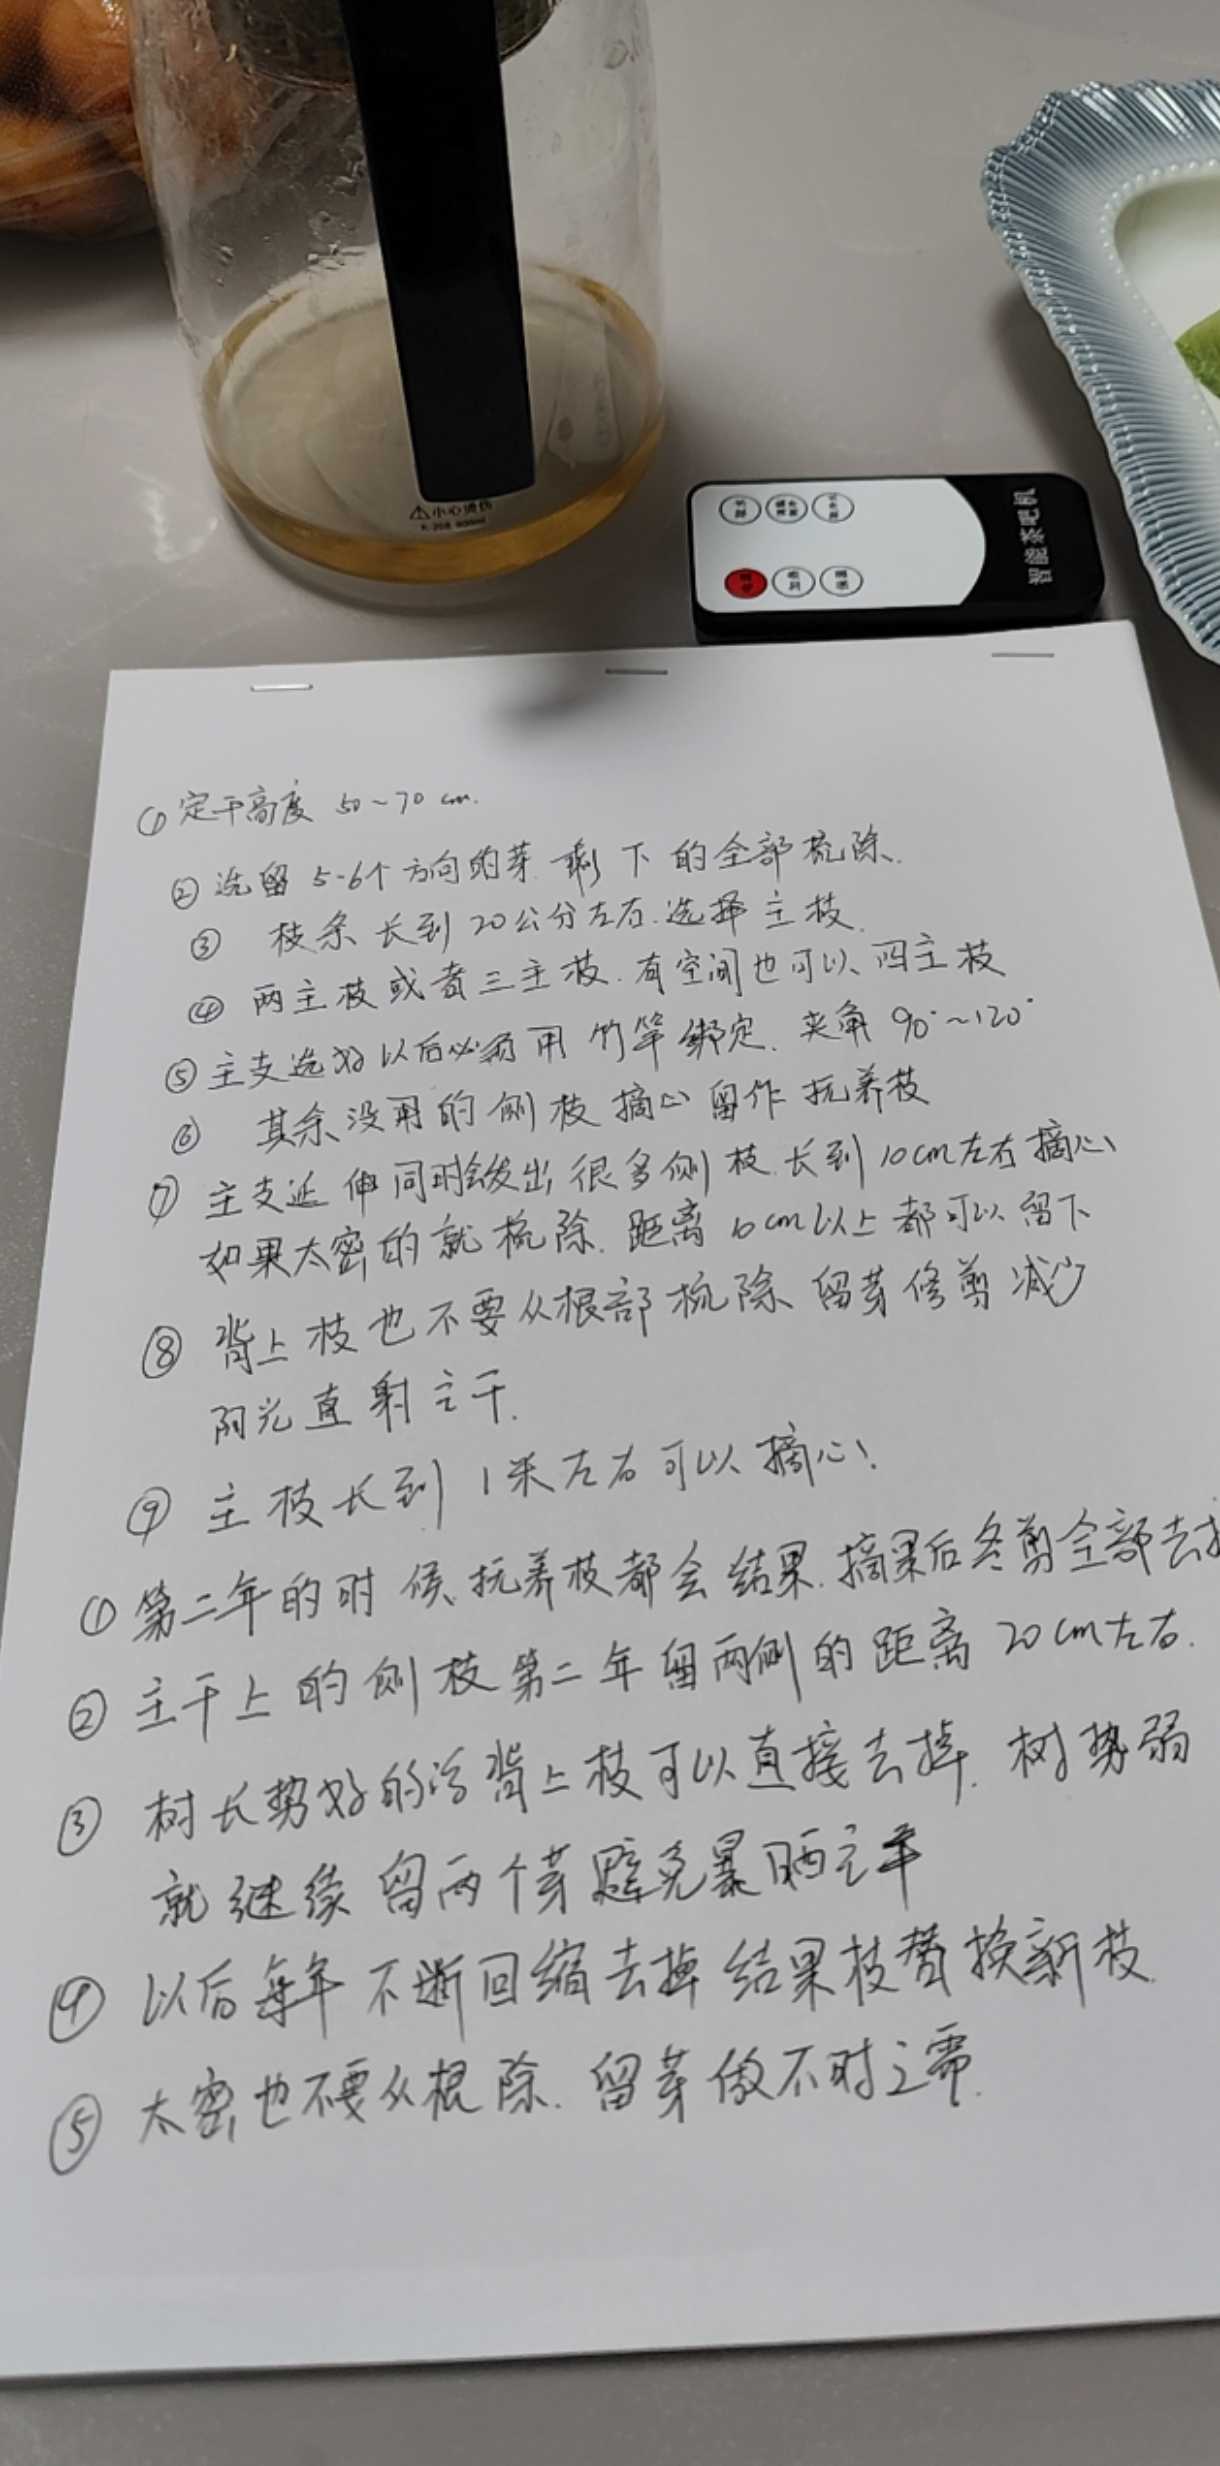 小心烫伤
智能茶吧机
① 定干高度 50~70 cm.
② 选留 5-6个方向的芽. 剩下的全部梳除.
③ 枝条长到20公分左右.选择主枝.
④ 两主枝或者三主枝.有空间也可以、四主枝
⑤ 主支选好以后必须用竹竿绑定. 夹角 90°~120°
⑥ 其余没用的侧枝摘心留作抚养枝
⑦ 主支延伸同时会发出很多侧枝.长到10cm左右摘心、
如果太密的就梳除. 距离10cm以上都可以留下
⑧ 背上枝也不要从根部梳除、留芽修剪减少
阳光直射主干.
⑨ 主枝长到1米左右可以摘心!
① 第二年的时候、抚养枝都会结果.摘果后冬剪全部去
② 主干上的侧枝第二年留两侧的距离20cm左右.
③ 树长势好的话背上枝可以直接去掉. 树势弱
就继续留两个芽避免暴晒主干
④ 以后每年不断回缩去掉结果枝替换新枝.
⑤ 太密也不要从根除. 留芽做不时之需.